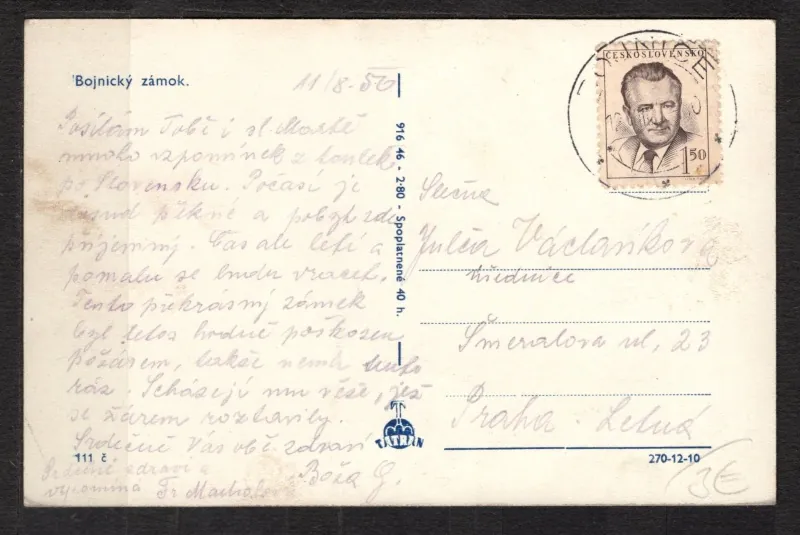 Bojnický zámok.
11/8. 50
Posílám Tobě i sl. Martě
mnoho vzpomínek z toulek
po Slovensku. Počasí je
dosud pěkné a pobyt zde
příjemný. Čas ale letí a
pomalu se budu vracet.
Tento překrásný zámek
byl letos hodně poškozen
požárem, takže nemá tento
ráz. Scházejí mu věže, jež
se žárem roztavily.
Srdečně Vás obě zdraví
Boža G.
Srdečně zdraví a
vzpomíná Fr
111 č.
916 46 - 2·80 - Spoplatnené 40 h.
TATRAN
ČESKOSLOVENSKO
1 50
Slečna
Julča Václavíková
úřednice
Šmeralova ul. 23
Praha - Letná
270-12-10
3€